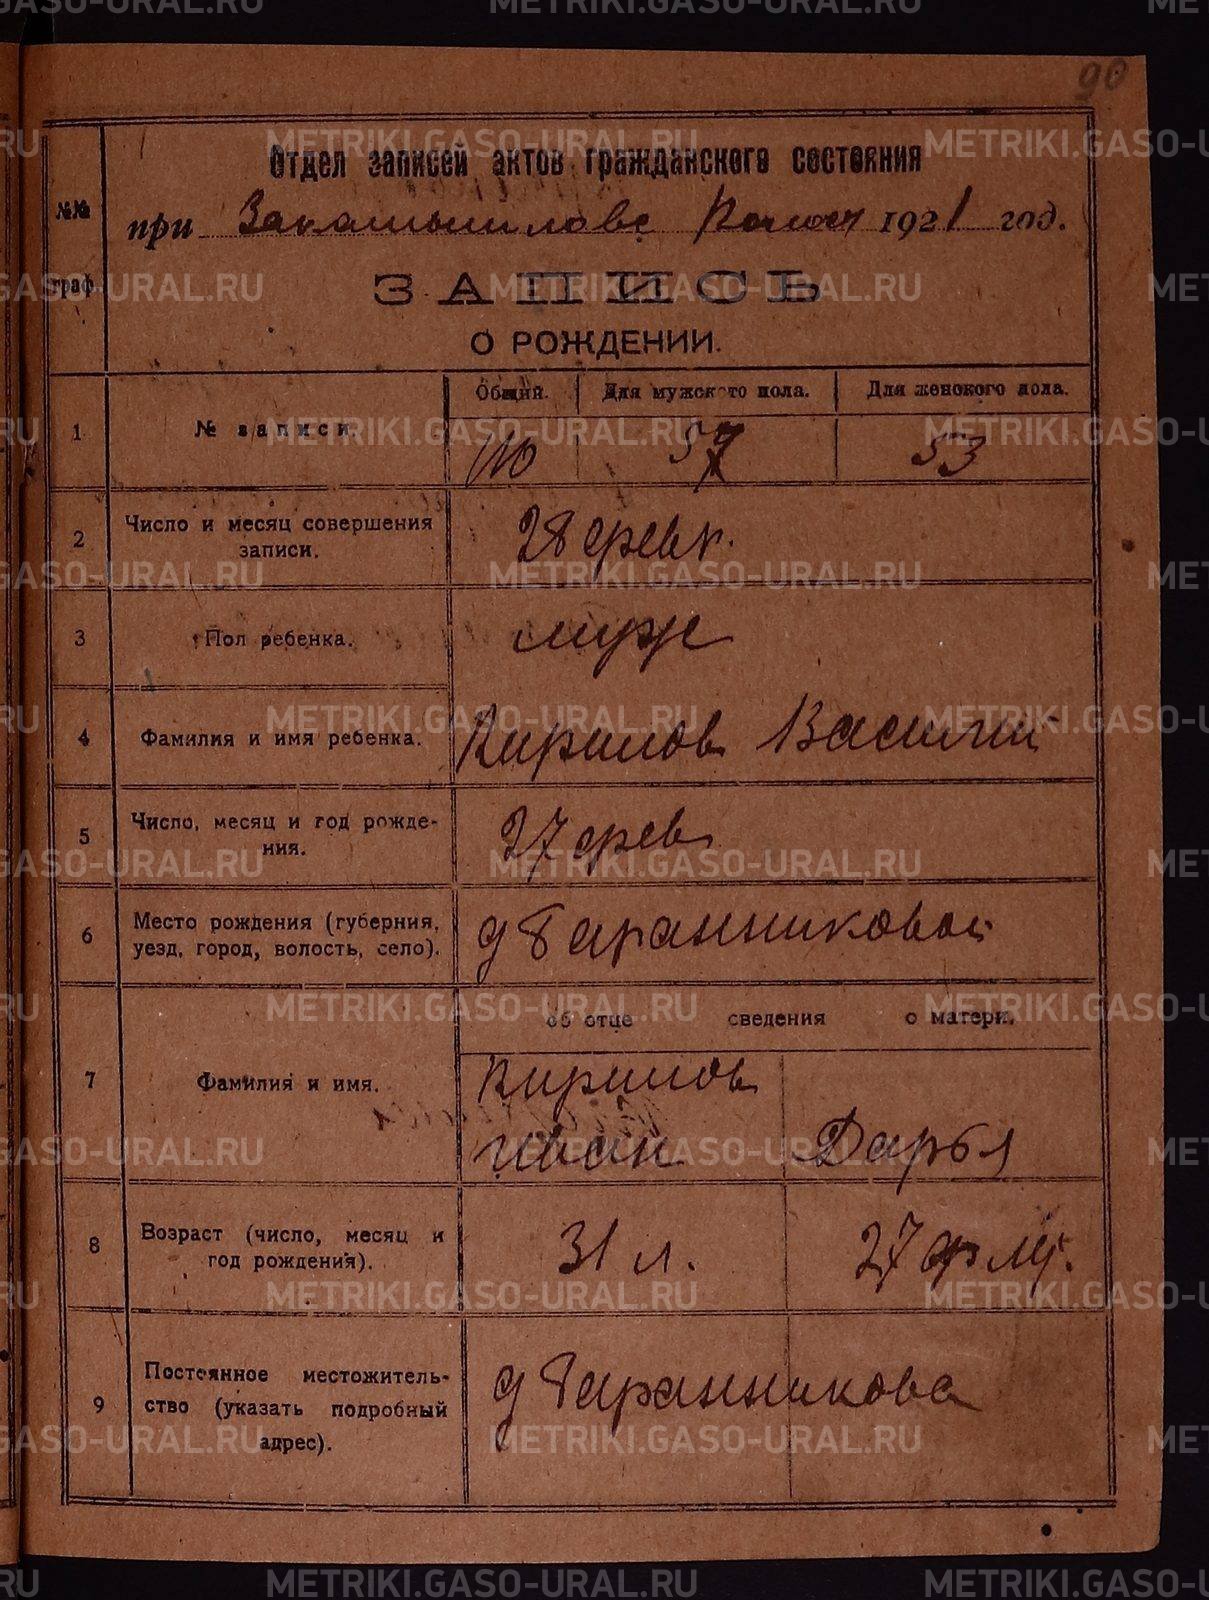 90
Отдел записей актов гражданского состояния
при Закамышловс Волост 1921 год.
№№ граф.
ЗАПИСЬ
О РОЖДЕНИИ.
1 № записи. Общий. Для мужского пола. Для женского пола.
110 57 53
2 Число и месяц совершения записи. 28 февр.
3 Пол ребенка. муж
4 Фамилия и имя ребенка. Кирилов Василий
5 Число, месяц и год рожде-
ния. 27 фев
6 Место рождения (губерния, уезд, город, волость, село). д Баранниковой
об отце сведения о матери.
7 Фамилия и имя. Кирилов
Иван Дарья
8 Возраст (число, месяц и год рождения). 31 л. 27
9 Постоянное местожитель-
ство (указать подробный адрес). д Баранникова
METRIKI.GASO-URAL.RU